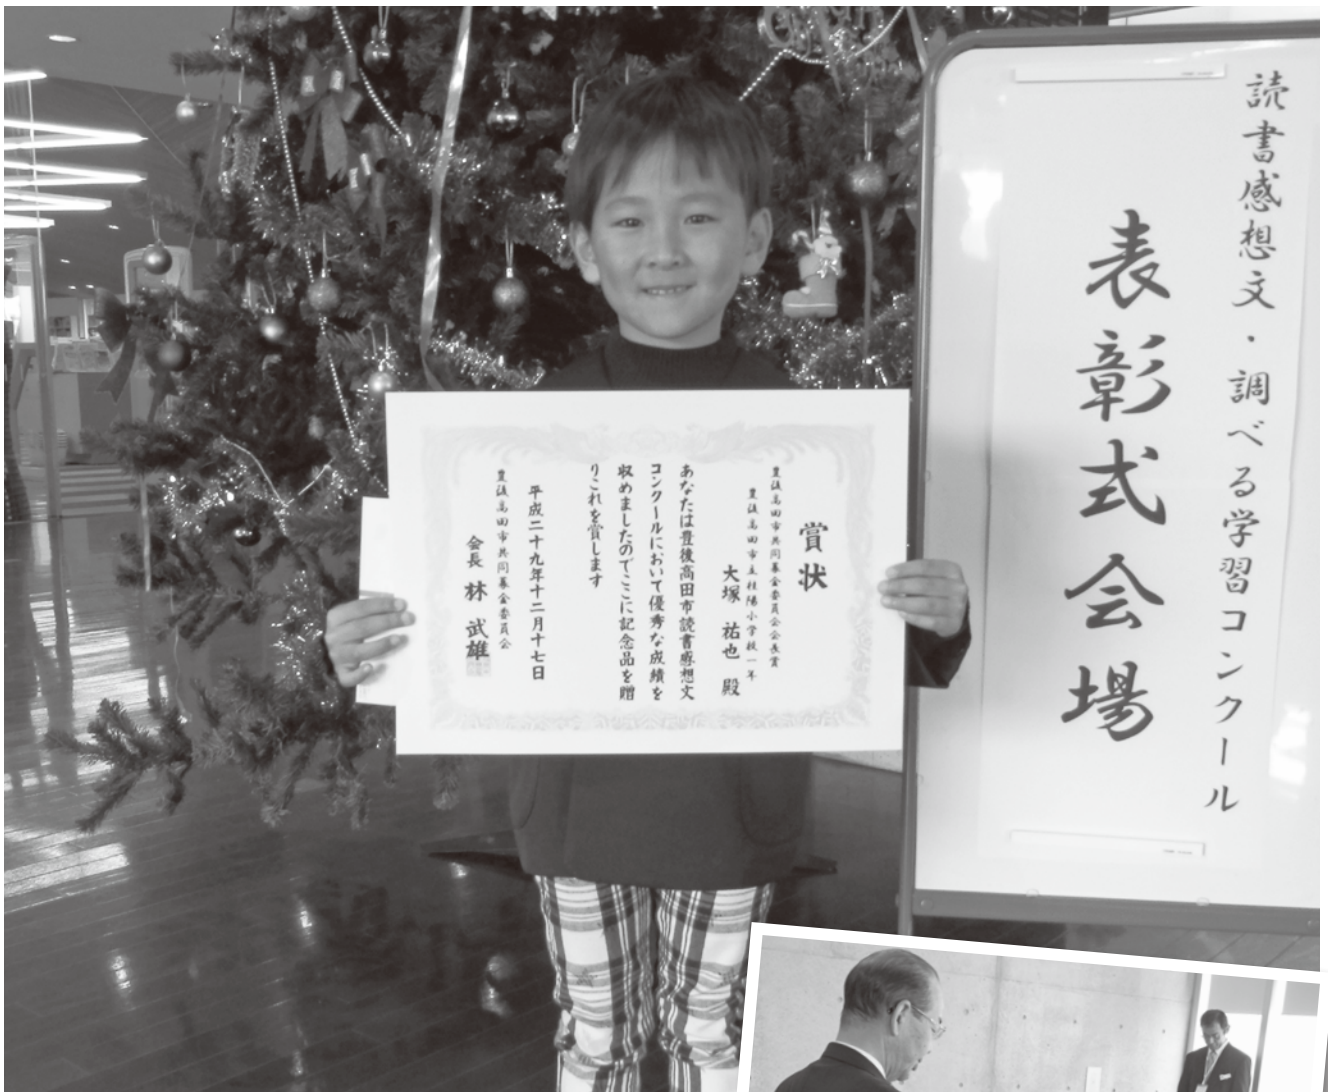 読書感想文・調べる学習コンクール
表彰式会場
賞状
豊後高田市共同募金委員会会長賞
豊後高田市立桂陽小学校一年
大塚 祐也 殿
あなたは豊後高田市読書感想文
コンクールにおいて優秀な成績を
収めましたのでここに記念品を贈
りこれを賞します
平成二十九年十二月十七日
豊後高田市共同募金委員会
会長 林 武雄